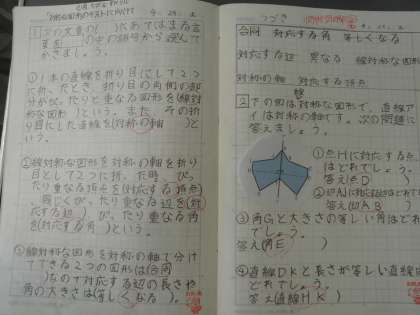 「対称な図形のテストにむけて
1 次の文章の( )にあてはまる言
葉を の中の語句から選んで
かきましょう。
①1本の直線を折り目にして2つ
に折ったとき、折り目の両側の部
分がぴったりと重なる図形を(線対
称な図形)という。また、その折
り目にした直線を(対称の軸)と
いう。
②線対称な図形を対称の軸を折り
目として2つに折った時、ぴっ
たり重なる頂点を(対応する頂点)
、同じくぴったり重なる辺を(対
応する辺)、ぴったり重なる角
を(対応する角)という。
③線対称な図形を対称の軸で分け
てできる2つの図形は(合同
)なので対応する辺の長さや
角の大きさは(等しくなる)。
つづき
合同 対応する角 等しくなる
対応する辺 異なる 線対称な図形
対称の軸 対応する頂点
2 下の図は対称な図形で、直線ア
イは対称の軸です。次の問題に
答えましょう。
①点Hに対応する点
はどれでしょう。
答え(点D)
答え(辺AB)
③角Gと大きさの等しい角はどれ
でしょう。
答え(角E)
④直線DKと長さが等しい直線は
どれでしょう。
答え(直線HK)